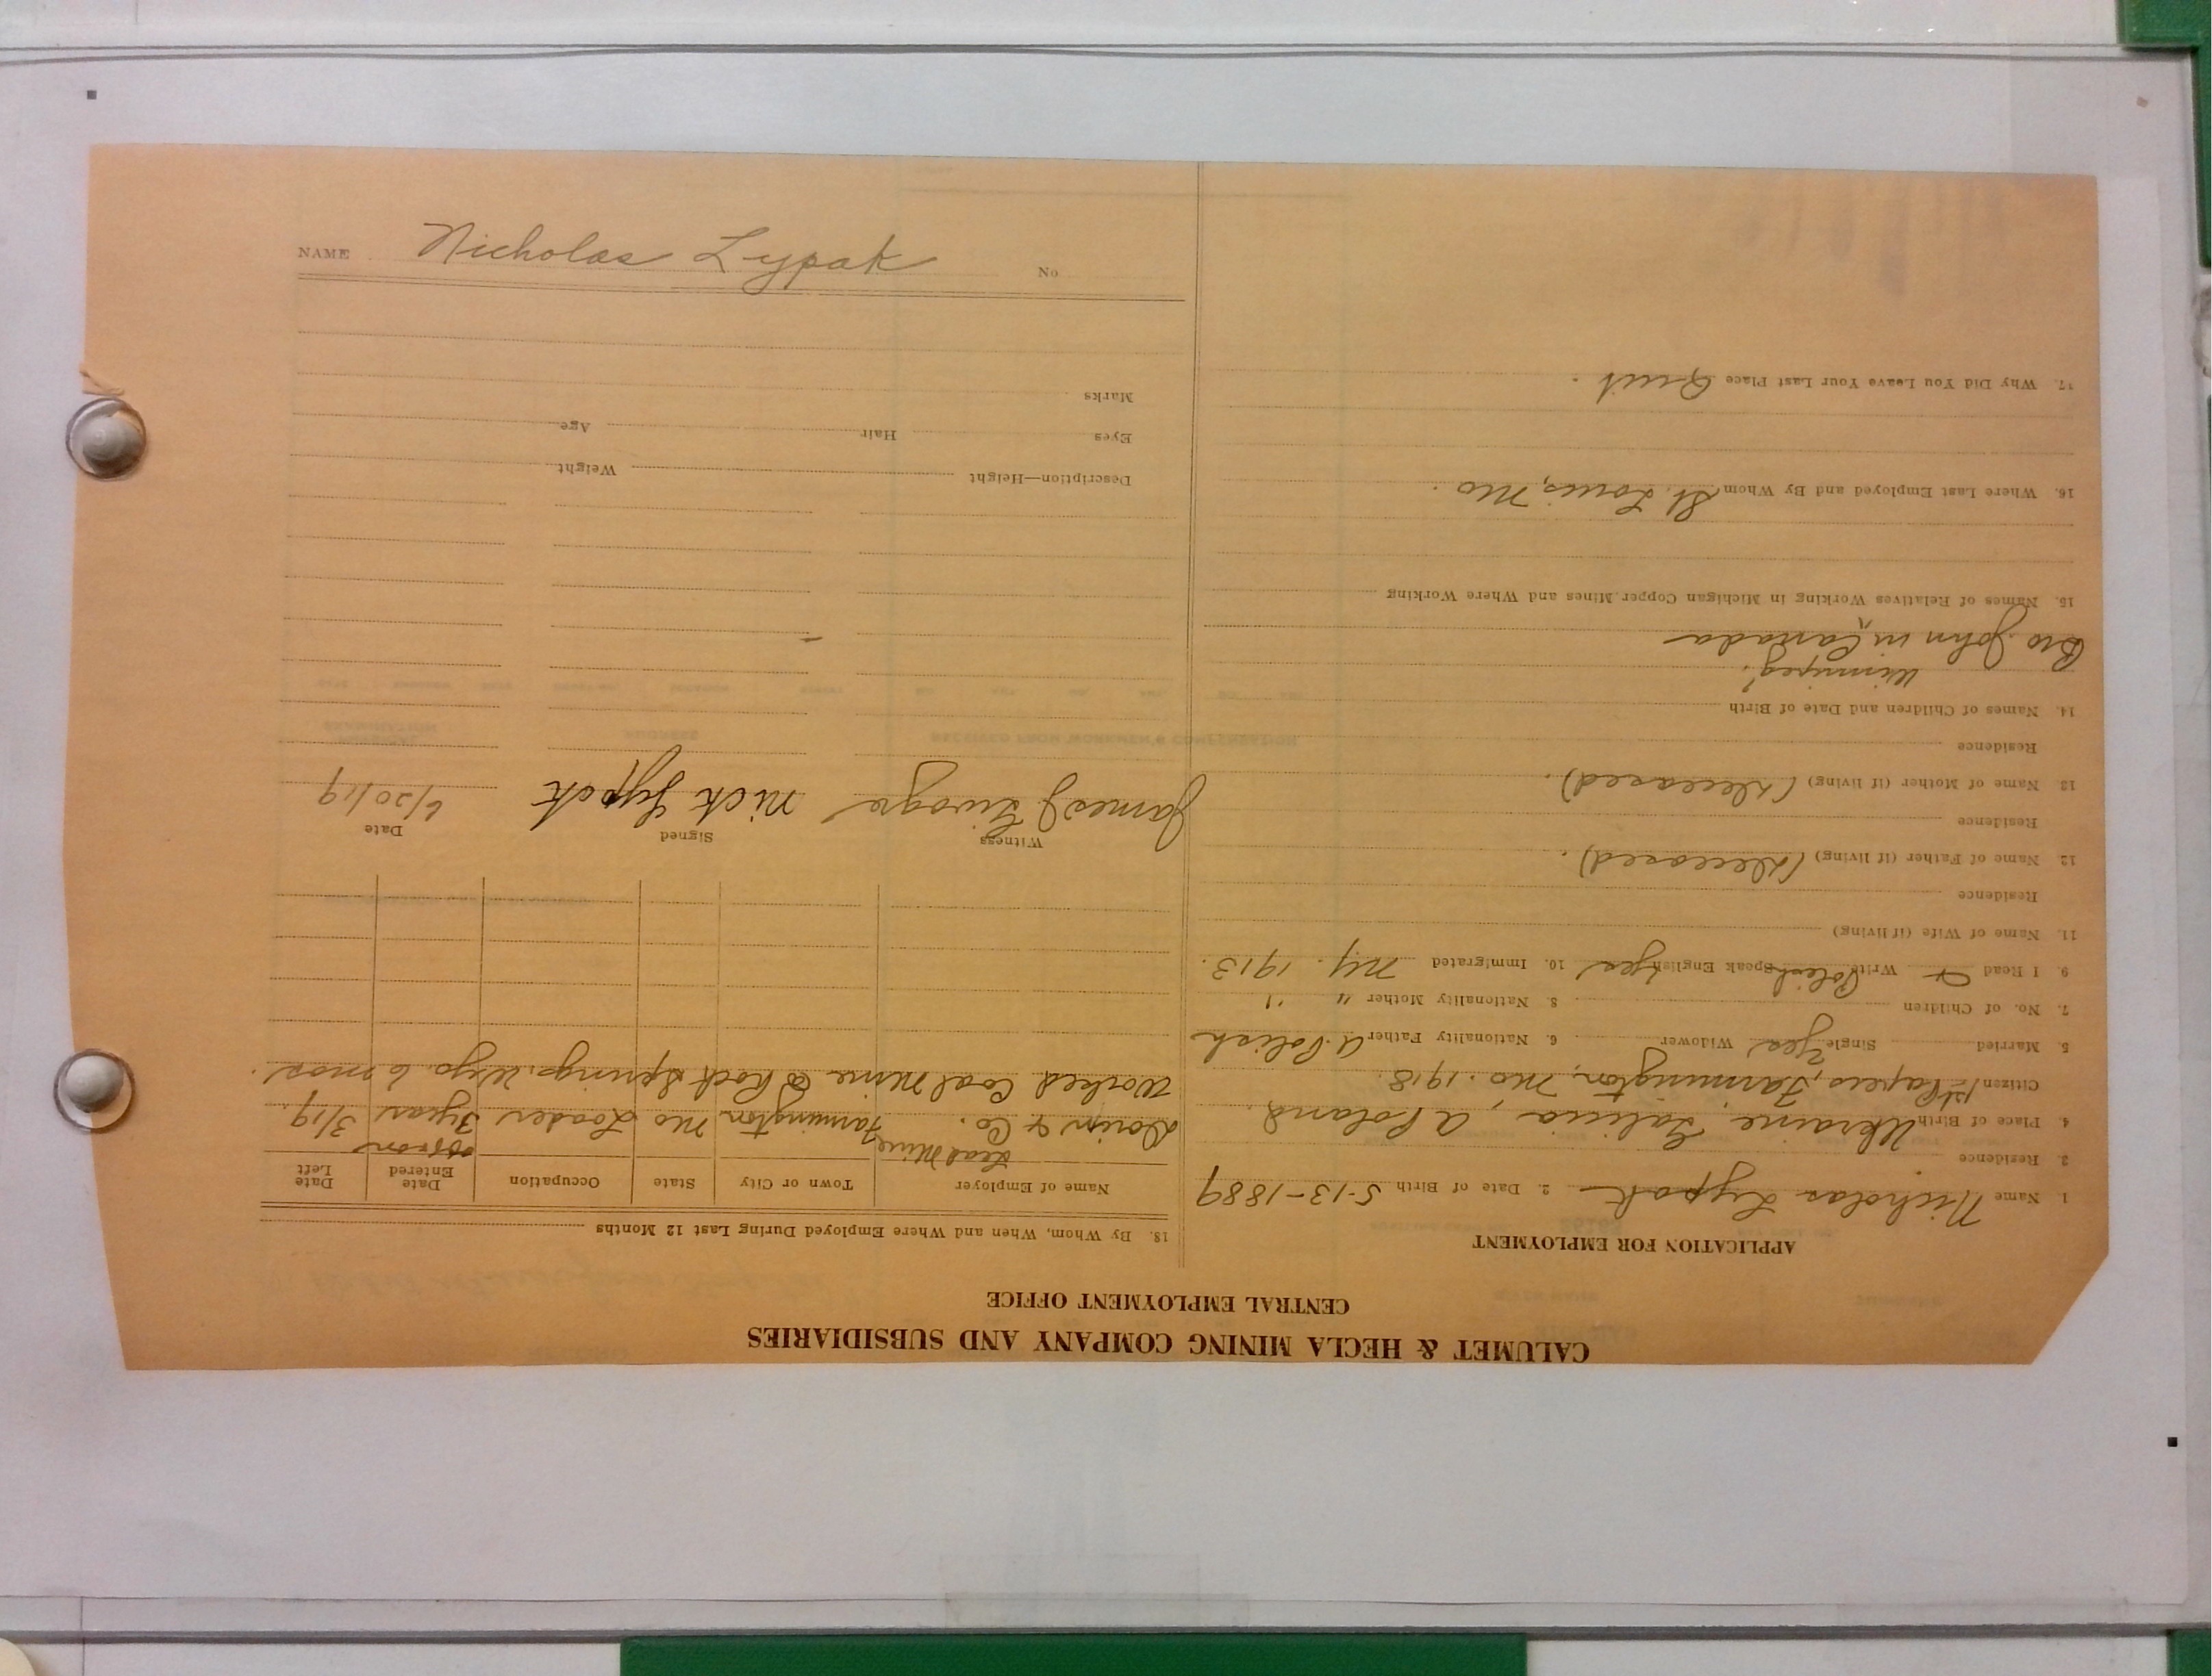 CALUMET & HECLA MINING COMPANY AND SUBSIDIARIES
CENTRAL EMPLOYMENT OFFICE
APPLICATION FOR EMPLOYMENT
1. Name Nicholas Lypak 2. Date of Birth 5-13-1889
3. Residence
4. Place of Birth Ukraine, Galicia, A Poland.
Citizen 1st Papers, Farmington, Mo. 1918.
5. Married Single Yes Widower 6. Nationality Father A. Polish
7. No. of Children 8. Nationality Mother " "
9 I Read & Write Polish Speak English Yes 10. Immigrated N.Y. 1913.
11. Name of Wife (if living)
Residence
12. Name of Father (if living) (Deceased).
Residence
13 Name of Mother (if living) (Deceased).
Residence
14. Names of Children and Date of Birth
Winnipeg,
Bro. John in ^ Canada
15. Names of Relatives Working in Michigan Copper Mines and Where Working
16. Where Last Employed and By Whom St. Louis, Mo.
17. Why Did You Leave Your Last Place Quit.
18. By Whom, When and Where Employed During Last 12 Months
Name of Employer Town or City State Occupation Date Entered Date Left
Lead Mine off & on
& Co. Farmington Mo Loader 3 years 3/19.
Worked Coal Mine @ Rock Springs Wyo. 6 mos.
Witness Signed Date
James J Nick Lypak 6/20/19
Description—Height Weight
Eyes Hair Age
Marks
NAME Nicholas Lypak No